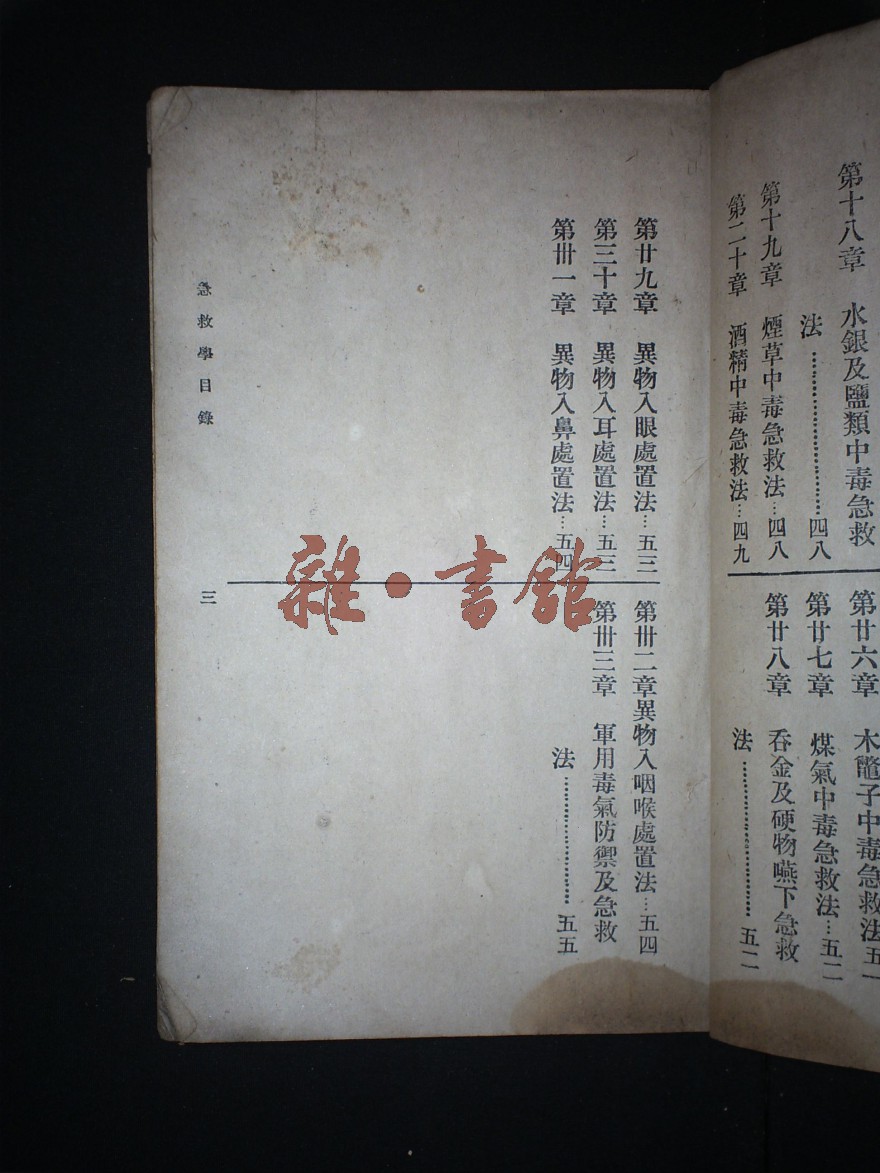 第十八章　水銀及鹽類中毒急救
法……………………四八
第十九章　煙草中毒急救法…四八
第二十章　酒精中毒急救法…四九
第廿六章　木鼈子中毒急救法五一
第廿七章　煤氣中毒急救法…五二
第廿八章　吞金及硬物嚥下急救
法……………………五二
第廿九章　異物入眼處置法…五三
第三十章　異物入耳處置法…五三
第卅一章　異物入鼻處置法…五四
第卅二章異物入咽喉處置法…五四
第卅三章　軍用毒氣防禦及急救
法……………………五五
急救學目錄
三
雜·書館